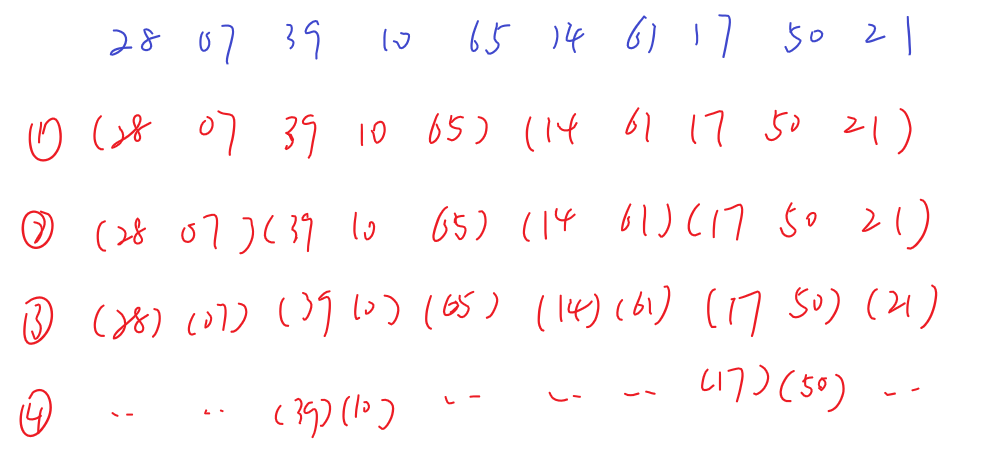 28 07 39 10 65 14 61 17 50 21
① (28 07 39 10 65) (14 61 17 50 21)
② (28 07) (39 10 65) (14 61) (17 50 21)
③ (28) (07) (39 10) (65) (14) (61) (17 50) (21)
④ -- -- (39) (10) -- -- -- (17) (50) --